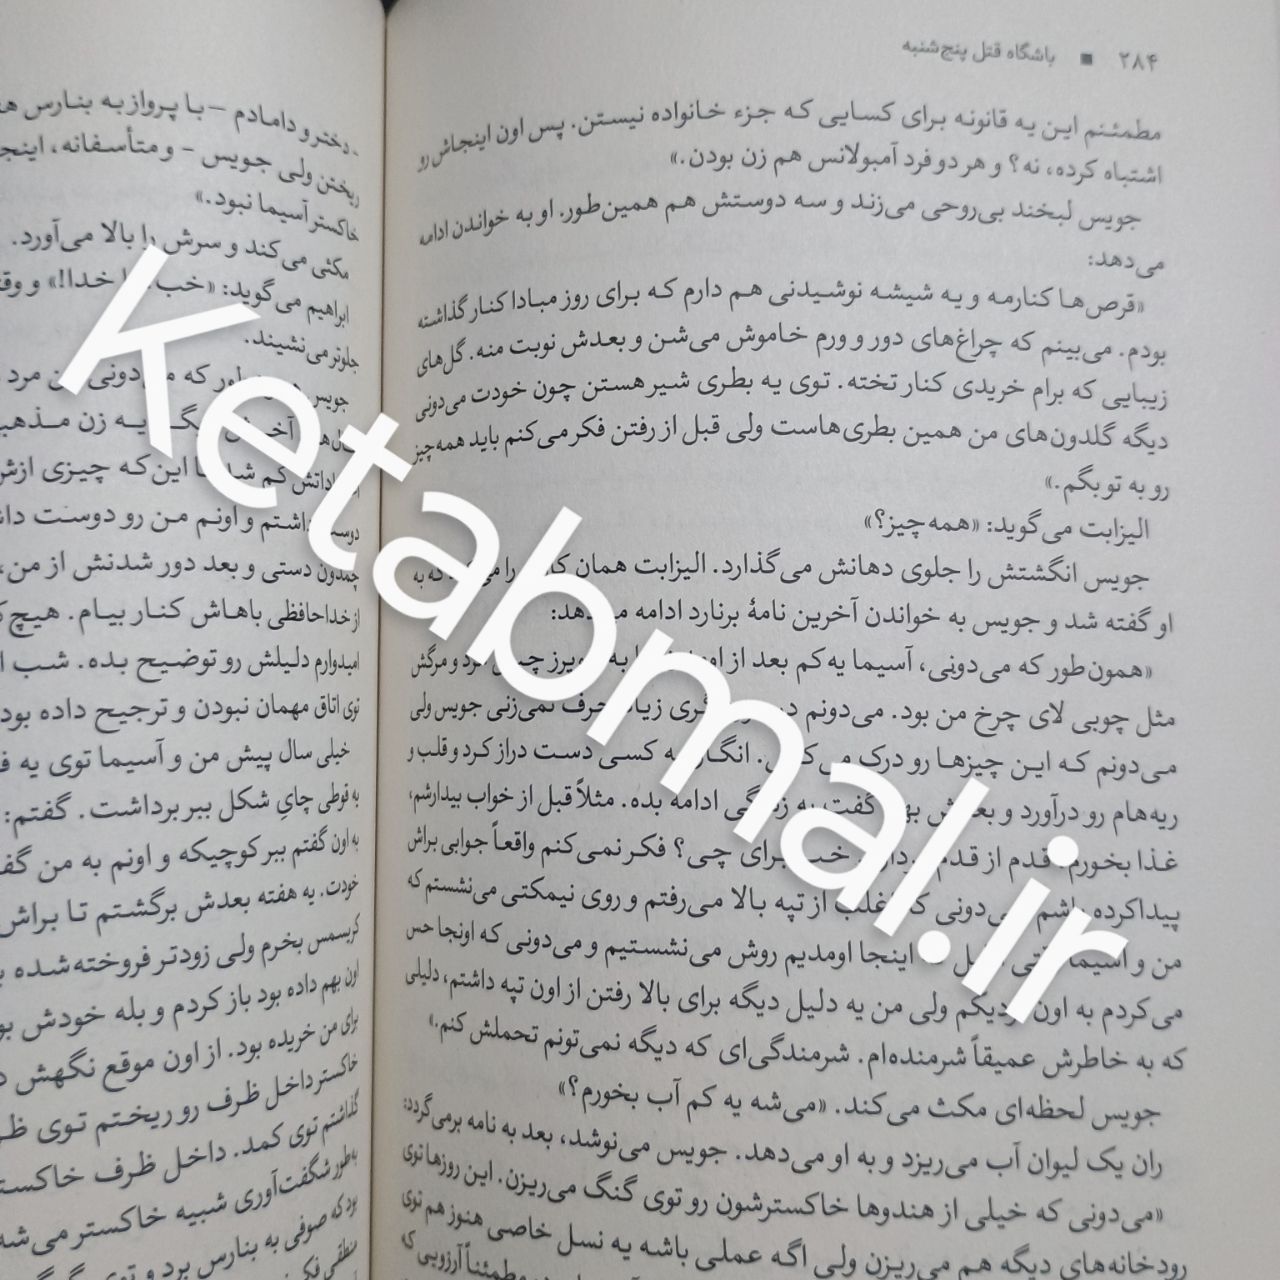 ۲۸۴ ■ باشگاه قتل پنج‌شنبه
مطمئنم این یه قانونه برای کسایی که جزء خانواده نیستن. پس اون اینجاش رو
اشتباه کرده، نه؟ و هر دو فرد آمبولانس هم زن بودن.»
جویس لبخند بی‌روحی می‌زند و سه دوستش هم همین‌طور. او به خواندن ادامه
می‌دهد:
«قرص‌ها کنارمه و یه شیشه نوشیدنی هم دارم که برای روز مبادا کنار گذاشته
بودم. می‌بینم که چراغ‌های دور و ورم خاموش می‌شن و بعدش نوبت منه. گل‌های
زیبایی که برام خریدی کنار تخته. توی یه بطری شیر هستن چون خودت می‌دونی
دیگه گلدون‌های من همین بطری‌هاست ولی قبل از رفتن فکر می‌کنم باید همه‌چیز
رو به تو بگم.»
الیزابت می‌گوید: «همه‌چیز؟»
جویس انگشتش را جلوی دهانش می‌گذارد. الیزابت همان را که به
او گفته شد و جویس به خواندن آخرین نامهٔ برنارد ادامه می‌دهد:
«همون‌طور که می‌دونی، آسیما یه‌کم بعد از و مرگش
مثل چوبی لای چرخ من بود. می‌دونم حرف نمی‌زنی جویس ولی
می‌دونم که این چیزها رو درک می‌کنی. انگار یه کسی دست دراز کرد و قلب و
ریه‌هام رو درآورد و بعدش بهم گفت به زندگی ادامه بده. مثلاً قبل از خواب بیدارشم،
غذا بخورم، قدم از قدم بردارم. خب برای چی؟ فکر نمی‌کنم واقعاً جوابی براش
پیدا کرده باشم. می‌دونی که اغلب از تپه بالا می‌رفتم و روی نیمکتی می‌نشستم که
من و آسیما وقتی اینجا اومدیم روش می‌نشستیم و می‌دونی که اونجا حس
می‌کردم به اون نزدیکم ولی من یه دلیل دیگه برای بالا رفتن از اون تپه داشتم، دلیلی
که به خاطرش عمیقاً شرمنده‌ام. شرمندگی‌ای که دیگه نمی‌تونم تحملش کنم.»
جویس لحظه‌ای مکث می‌کند. «می‌شه یه کم آب بخورم؟»
ران یک لیوان آب می‌ریزد و به او می‌دهد. جویس می‌نوشد، بعد به نامه برمی‌گردد:
«می‌دونی که خیلی از هندوها خاکسترشون رو توی گنگ می‌ریزن. این روزها توی
رودخانه‌های دیگه هم می‌ریزن ولی اگه عملی باشه یه نسل خاصی هنوز هم توی
مطمئناً آرزویی که
- دختر و دامادم – با پرواز به بنارس
ریختن ولی جویس - و متأسفانه،
خاکستر آسیما نبود.»
مکثی می‌کند و سرش را بالا می‌آورد.
ابراهیم می‌گوید: «خب. خدا!» و
جلوتر می‌نشیند.
جویس که می‌دونی مرد
آخر یه زن
کم شد این‌که چیزی
دوست داشتم و اونم من رو دوست
چمدون دستی و بعد دور شدنش از من،
از خداحافظی باهاش کنار بیام. هیچ
امیدوارم دلیلش رو توضیح بده. شب
توی اتاق مهمان نبودن و ترجیح داده
خیلی سال پیش من و آسیما توی یه
به قوطی چایِ شکل ببر برداشت. گفتم:
به اون گفتم ببر کوچیکه و اونم به من
خودت. یه هفته بعدش برگشتم تا براش
کریسمس بخرم ولی زودتر فروخته‌شده
اون بهم داده بود باز کردم و بله خودش
برای من خریده بود. از اون موقع نگهش
خاکستر داخل ظرف رو ریختم توی
گذاشتم توی کمد. داخل ظرف
به‌طور شگفت‌آوری شبیه خاکستر می‌شه
بود که صوفی به بنارس برد و توی
منطقی
Ketabmal.ir